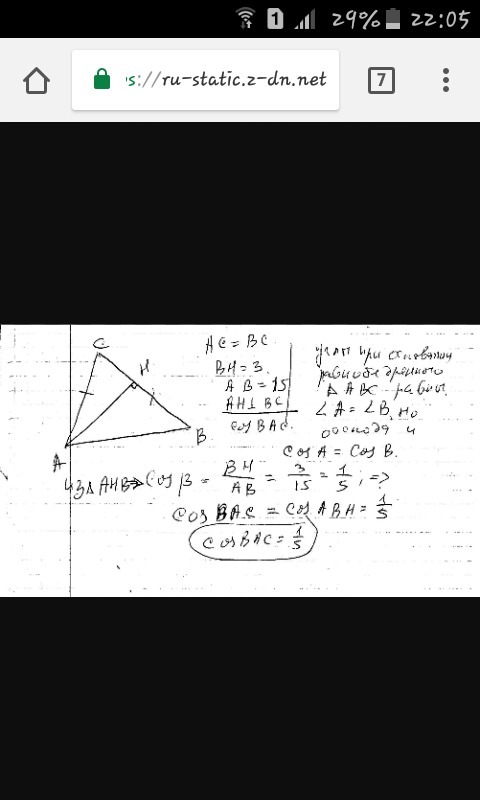 1 29% 22:05
s://ru-static.z-dn.net 7
C
H
B
A
AC = BC
BH = 3.
AB = 15
AH ⊥ BC
cos BAC.
углы при основании
равнобедренного
Δ ABC равны.
∠A = ∠B, но
cos A = cos B.
из Δ AHB => cos β = BH/AB = 3/15 = 1/5 ; =>
cos BAC = cos ABH = 1/5
cos BAC = 1/5